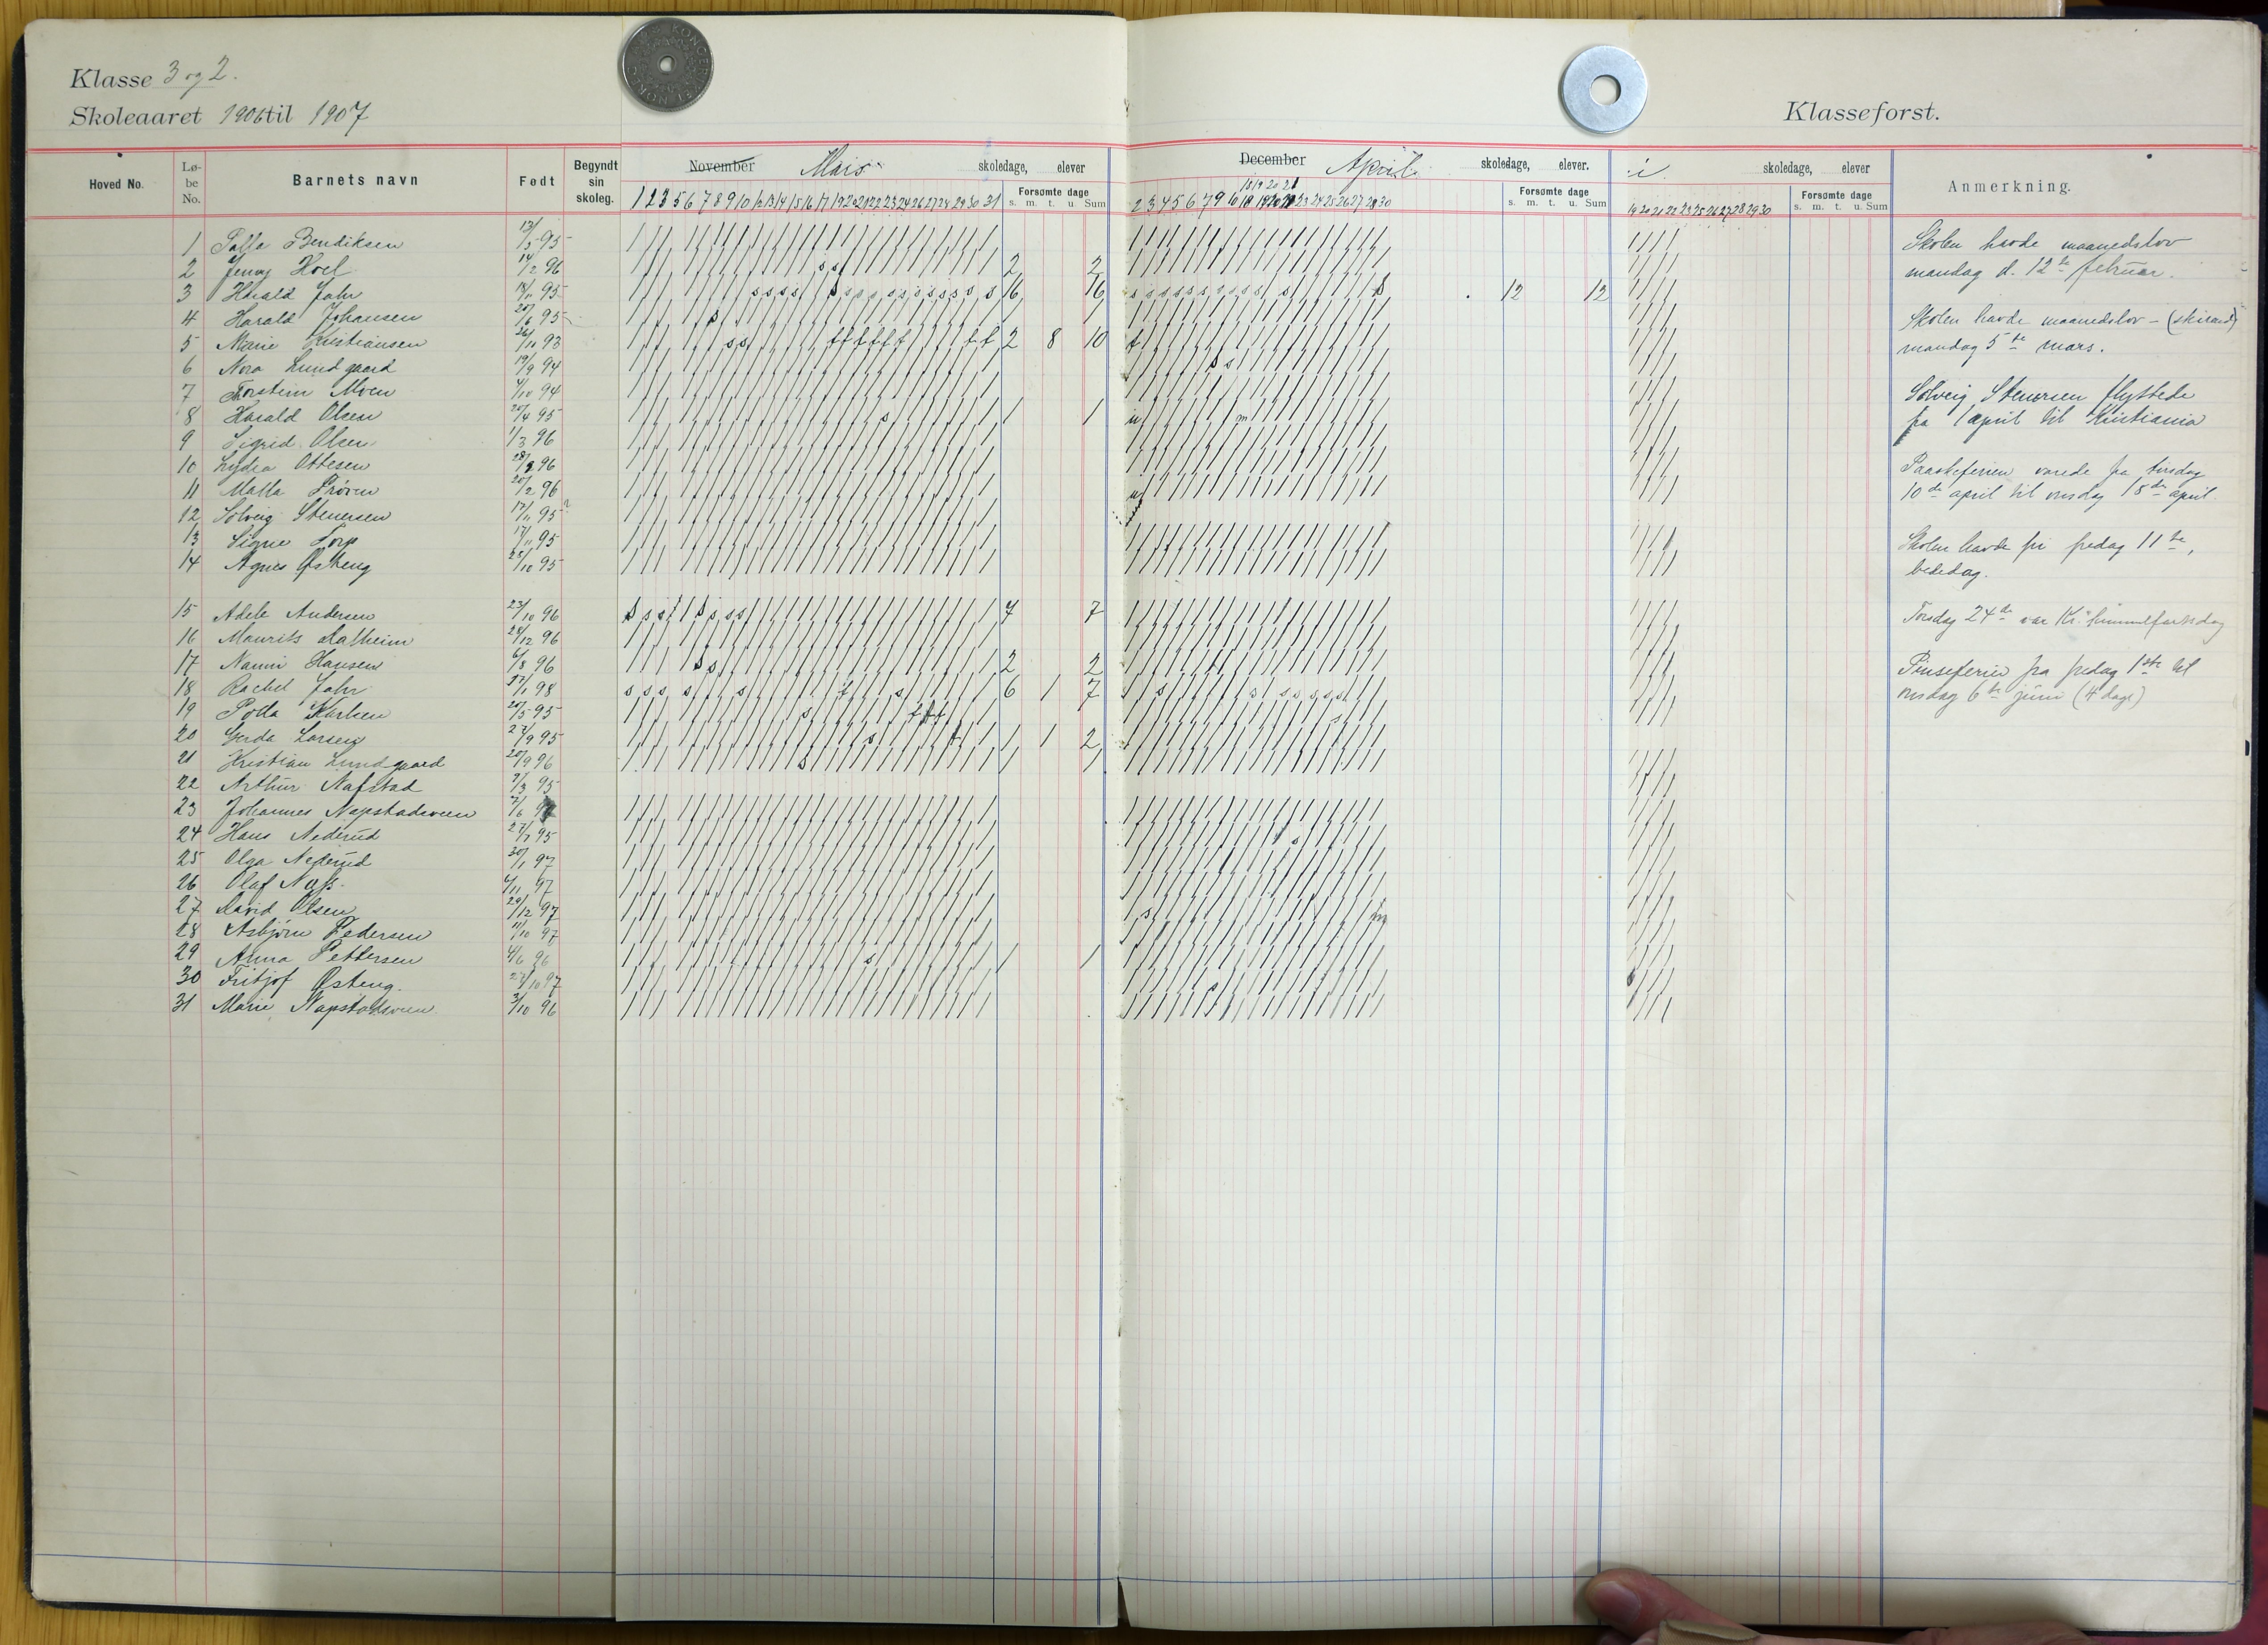 Klasse 3 og 2.
Skoleaaret 1906 til 1907
Klasseforst.
Hoved No.
Lø-
be
No.
Barnets navn
Født
Begyndt
sin
skoleg.
November Mars skoledage, elever
Forsømte dage
s. m. t. u. Sum
December April skoledage, elever.
Forsømte dage
s. m. t. u. Sum
skoledage, elever
Forsømte dage
s. m. t. u. Sum
Anmerkning.
1 Bendiksen
2 Jenny Hoel 14/2 96 2 2
3 Harald Jahr 95 16 16 12 12
4 Harald Johansen 20/6 95 1 1
5 Marie Kristiansen 26/11 93 2 8 10
6 Nora Lundgaard 19/9 94
7 Torstein Moen 4/10 94
8 Harald Olsen 20/4 95 1 1
9 Sigrid Olsen 1/3 96
10 Lydia Ottesen 28/2 96
11 Malla Prøven 20/2 96
12 Solveig Stenersen 17/11 95
13 Signe Torp 17/11 95
14 Agnes Østeng 25/10 95
15 Adele Andersen 23/10 96 7 7
16 Maurits Dalheim 28/12 96
17 Nanni Hansen 6/8 96 2 2
18 Rachel Jahr 98 6 1 7
19 Karlsen 20/5 95
20 Gerda Larsen 27/9 95 1 1 2
21 Kristian Lundgaard 20/9 96 1 1
22 Arthur Nafstad 9/3 95
23 Johannes Napstadveen
24 Hans Nederud 27/7 95
25 Olga Nederud 30/1 97
26 Olaf 6/11 97
27 David Olsen 29/12 97
28 Asbjørn Pedersen 11/10 97
29 Anna Pettersen 4/6 96 1 1
30 Fritjof Østeng. 27/10 97
31 Marie Napstadveen 3/10 96
Skolen havde maanedslov
mandag d. 12te februar.
Skolen havde maanedslov - (skirend)
mandag 5te mars.
Solveig Stenersen flyttede
fra 1 april til Kristiania
Paaskeferien varede fra tirsdag
10de april til onsdag 18de april.
Skolen havde fri fredag 11te,
bededag.
Torsdag 24de var Kr. himmelfartsdag
Pinseferie fra fredag 1ste til
onsdag 6te juni (4 dage)